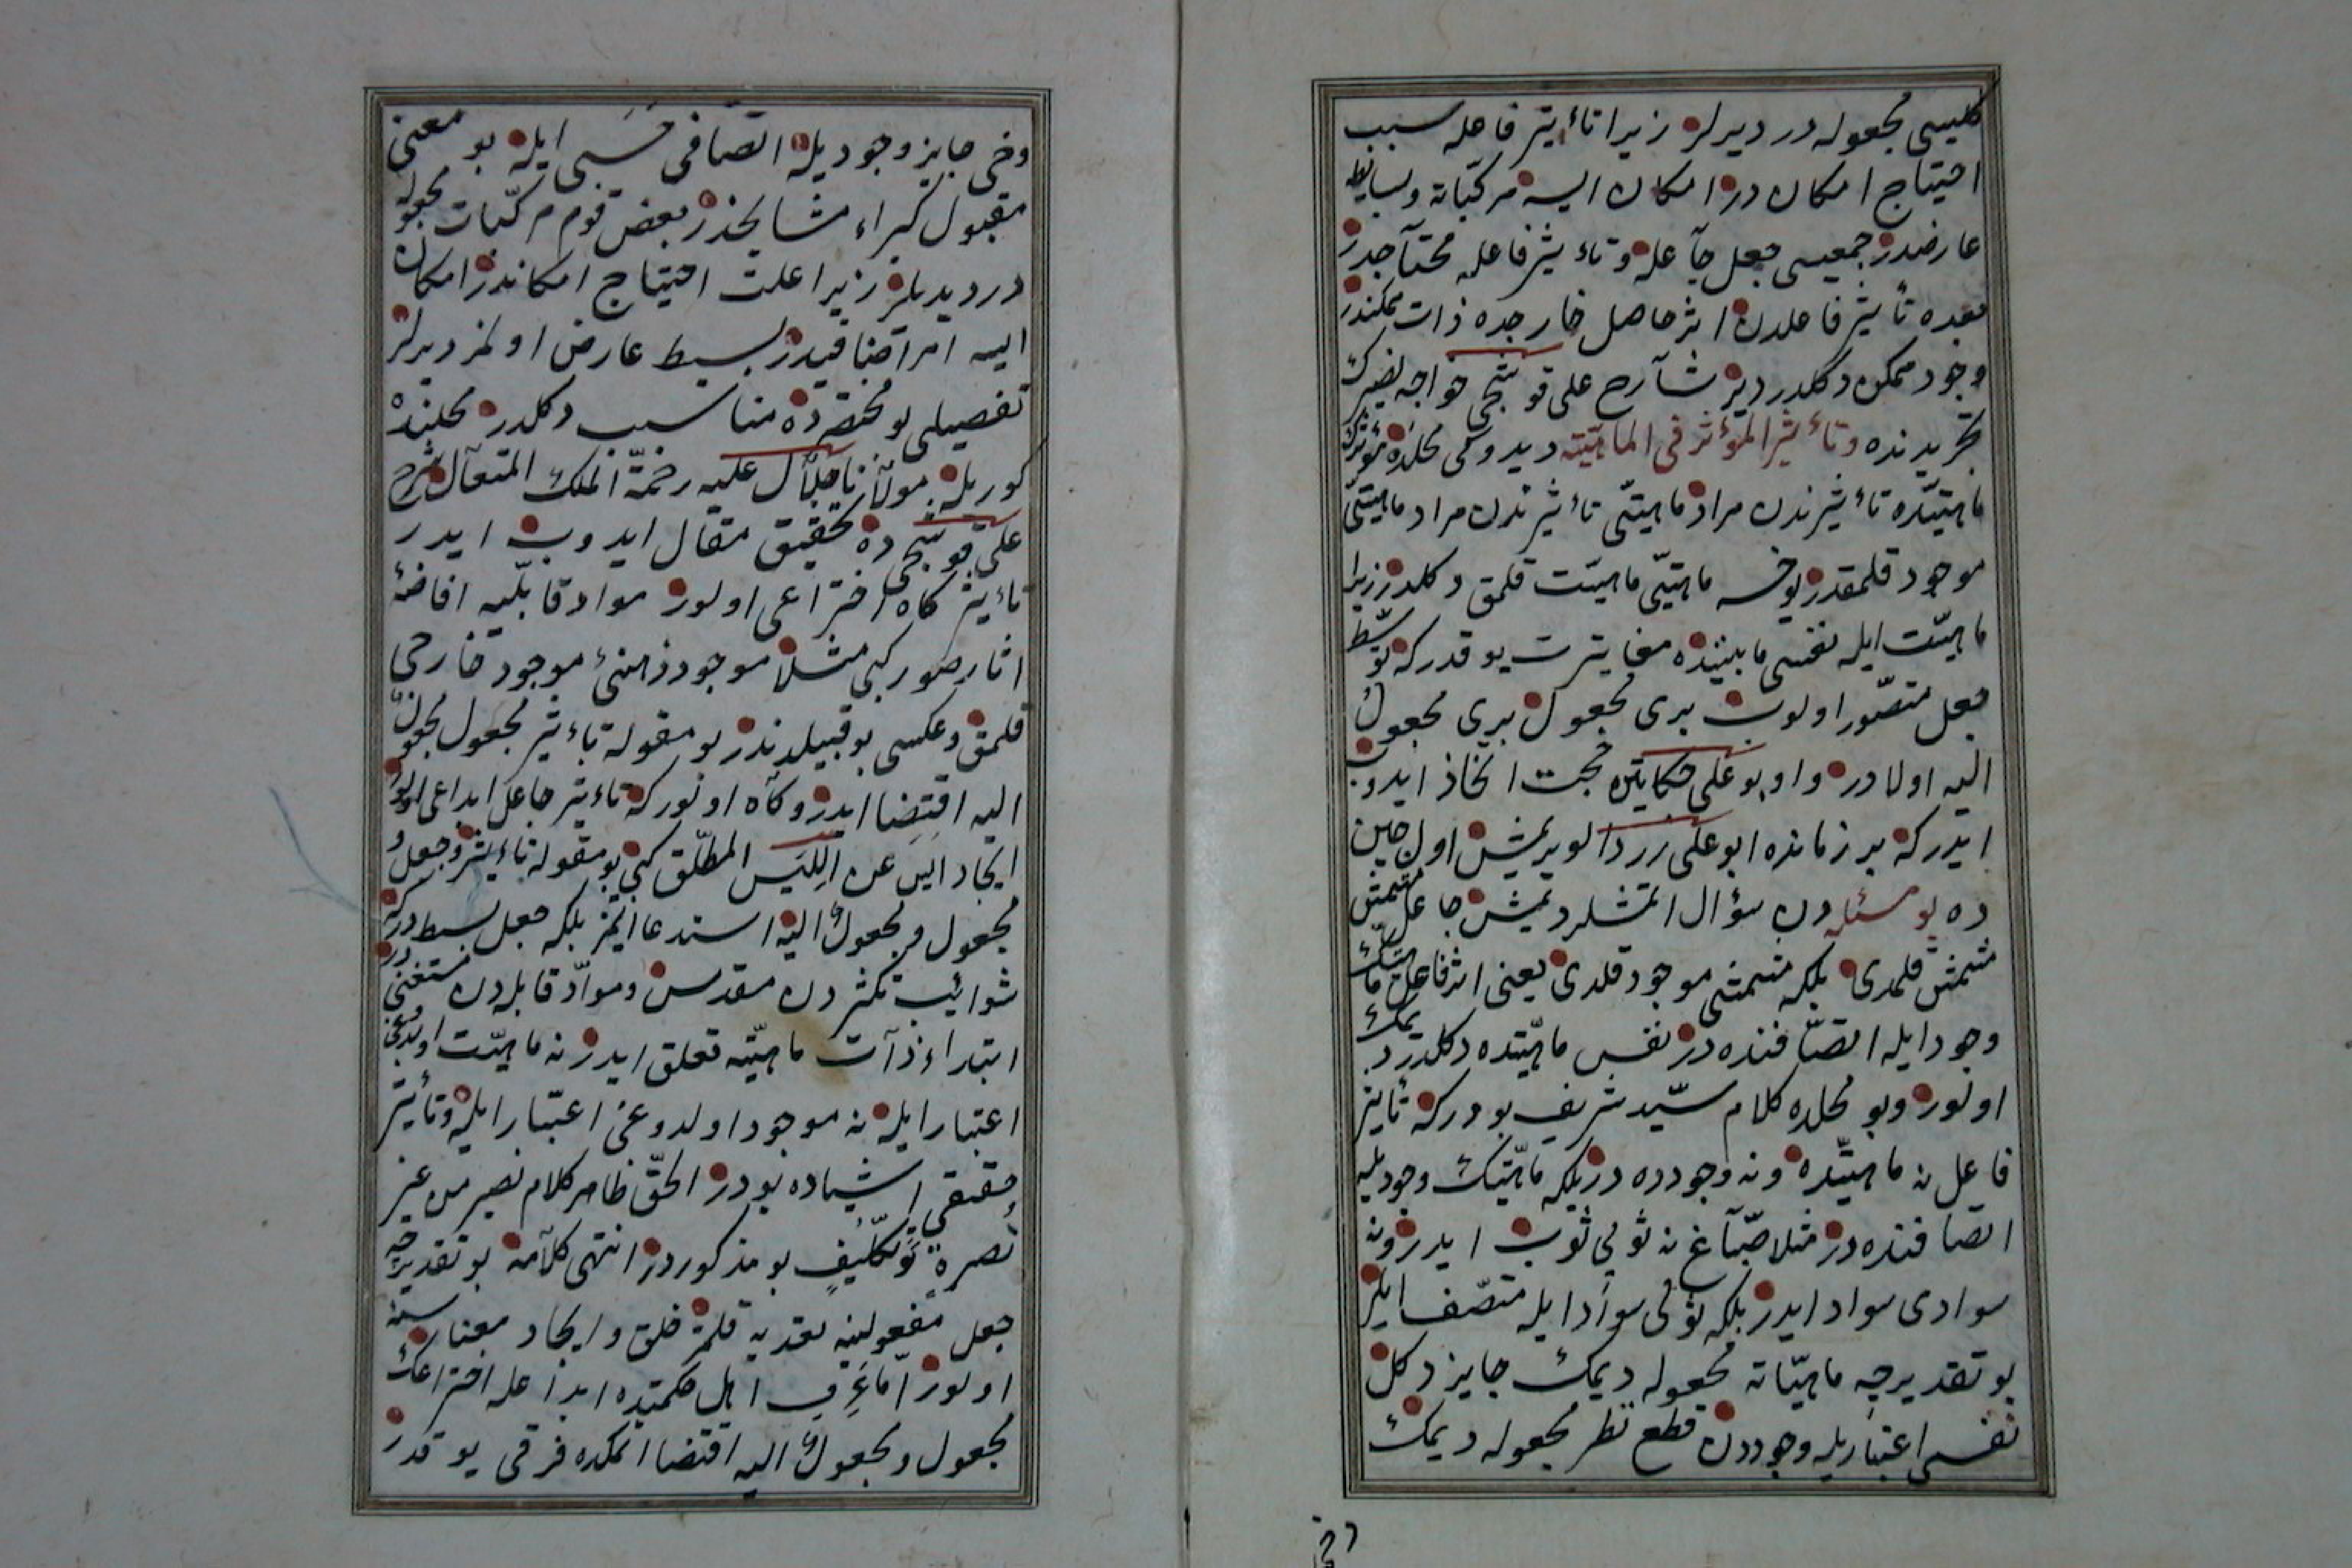 كليسى مجعوله در ديرلر زيرا تاثير فاعله سبب
احتياج امكان در امكان ايسه مركباته وبسايطه
عارضدر جميعسى جعل جاعله وتأثير فاعله محتاجدر
بعده تأثير فاعلدن اثر حاصل خارجده ذات ممكندر
وجود ممكن دكلدر ديو شارح على قوشجى خواجه نصيرك
تجريدنده وتأثير المؤثر فى الماهيته ديدوكى محلده مؤثرك
ماهيتده تأثيرندن مراد ماهيتى تأثيرندن مراد ماهيتى
موجود قلمقدر يوخسه ماهيتى ماهيت قلمق دكلدر زيرا
ماهيت ايله نفسى مابيننده مغايرت يوقدر كه توسط
جعل متصور اولوب برى مجعول برى مجعول
اليه اولا در وابو على حكايتن حجت اتخاذ ايدوب
ايدر كه بر زمانده ابو على زردالو يرمش اول حين
ده بو مسئله دن سؤال اتمشلر ديمش جاعل مشمش
مشمش قلمدى بلكه مشمشى موجود قلدى يعنى اثر فاعل ماهيتك
وجود ايله اتصافنده در نفس ماهيتده دكلدر ديمك
اولور وبو محلده كلام سيد شريف بودر كه تأثير
فاعل نه ماهيتده ونه وجودده در بلكه ماهيتك وجوديله
اتصافنده در مثلا صباغ نه ثوبى ثوب ايدر ونه
سوادى سواد ايدر بلكه ثوبى سواد ايله متصف ايلر
بو تقديرجه ماهياته مجعوله ديمك جايز دكل
نفسى اعتباريله وجوددن قطع نظر مجعوله ديمك
دخى
دخى جايز وجوديله اتصافى حسبى ايله بو معنى
مقبول كبراء مشايخدر بعض قوم مركبات مجعوله
در ديديلر زيرا علت احتياج امكاندر امكان
ايسه امر اضافيدر بسيط عارض اولمز ديرلر
تفصيلى بو مختصرده مناسب دكلدر محلنده
كوريله مولانا جلال عليه رحمة الملك المتعال شرح
على قوشجى ده تحقيق مقال ايدوب ايدر
تأثير كاه اختراعى اولور مواد قابليه افاضۀ
اثار صور كبى مثلا موجود ذهنىء موجود خارجى
قلمق وعكسى بو قبيلدندر بو مقوله تأثير مجعول مجعول
اليه اقتضا ايدر وكاه اولور كه تأثير جاعل ابداعى اولور
ايجاد ايس عن الليس المطلق كبى بو مقوله تأثير وجعل
مجعول ومجعول اليه استدعا ايتمز بلكه جعل بسيطدر كه
شوائب تكثردن مقدس ومواد قابلدن مستغنى در
ابتداء ذات ماهيته تعلق ايدر نه ماهيت اولدوغى
اعتبار ايله نه موجود اولدوغى اعتبار ايله وتأثير
حقيقى اشياده بودر الحق ظاهر كلام نصير من غير
نصرة وتكليف بو مذكوردر انتهى كلامه بو تقديرجه
جعل مفعولينه تعديه قلمز خلق وايجاد معناسنه
اولور اما عرف اهل حكمتده ابداعله اختراعك
مجعول ومجعول اليه اقتضا اتمكده فرقى يوقدر